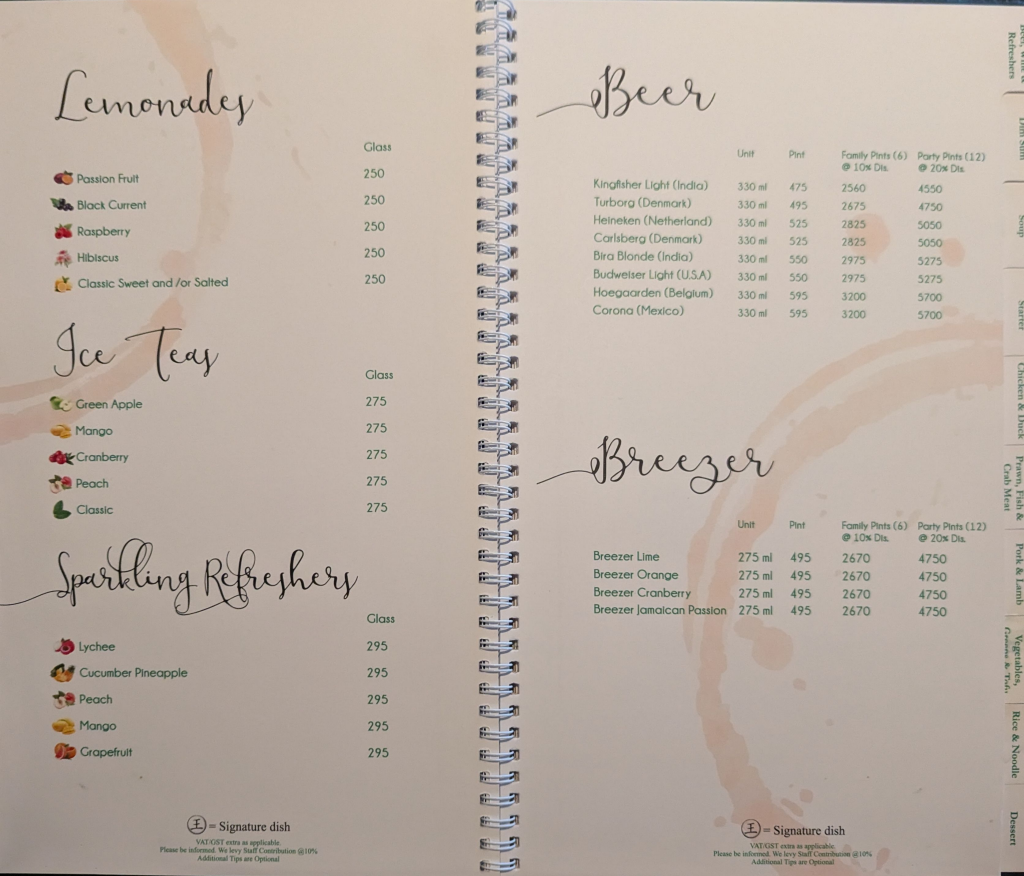 Lemonades
Glass
Passion Fruit 250
Black Current 250
Raspberry 250
Hibiscus 250
Classic Sweet and /or Salted 250
Ice Teas
Glass
Green Apple 275
Mango 275
Cranberry 275
Peach 275
Classic 275
Sparkling Refreshers
Glass
Lychee 295
Cucumber Pineapple 295
Peach 295
Mango 295
Grapefruit 295
王 = Signature dish
VAT/GST extra as applicable.
Please be informed. We levy Staff Contribution @10%
Additional Tips are Optional
Beer
Unit Pint Family Pints (6) Party Pints (12)
@ 10% Dis. @ 20% Dis.
Kingfisher Light (India) 330 ml 475 2560 4550
Turborg (Denmark) 330 ml 495 2675 4750
Heineken (Netherland) 330 ml 525 2825 5050
Carlsberg (Denmark) 330 ml 525 2825 5050
Bira Blonde (India) 330 ml 550 2975 5275
Budweiser Light (U.S.A) 330 ml 550 2975 5275
Hoegaarden (Belgium) 330 ml 595 3200 5700
Corona (Mexico) 330 ml 595 3200 5700
Breezer
Unit Pint Family Pints (6) Party Pints (12)
@ 10% Dis. @ 20% Dis.
Breezer Lime 275 ml 495 2670 4750
Breezer Orange 275 ml 495 2670 4750
Breezer Cranberry 275 ml 495 2670 4750
Breezer Jamaican Passion 275 ml 495 2670 4750
王 = Signature dish
VAT/GST extra as applicable.
Please be informed. We levy Staff Contribution @10%
Additional Tips are Optional
Refreshers
Dim Sum
Soup
Starter
Chicken & Duck
Prawn, Fish &
Crab Meat
Pork & Lamb
Vegetables,
Rice & Noodle
Dessert